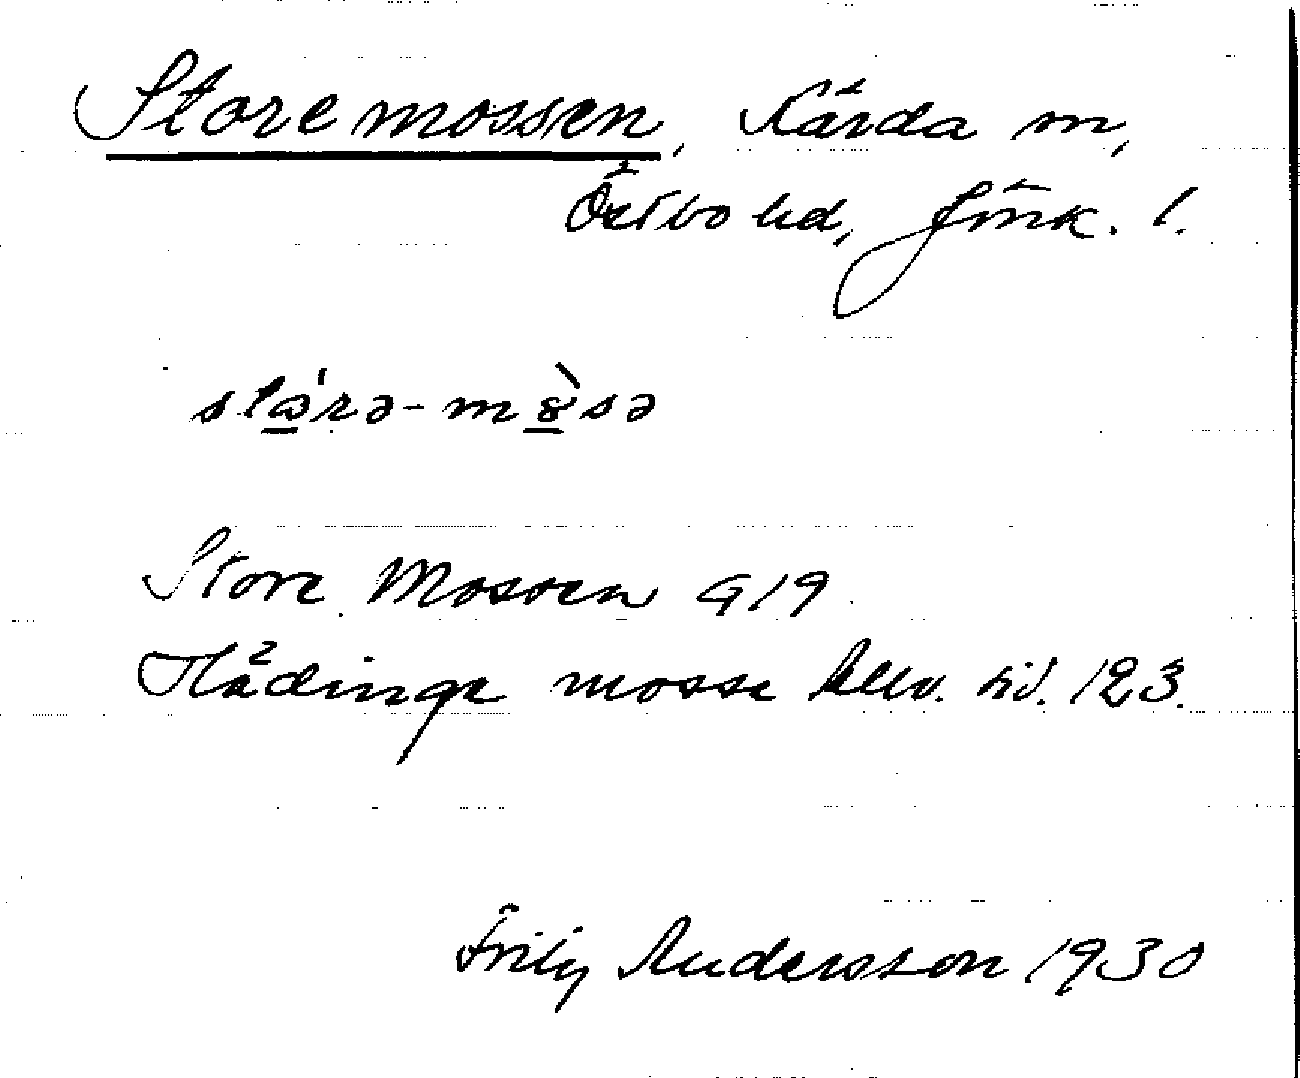 Store mossen, Kärda sn,
Östbo hd, Jönk. l.
stǫ́rə-mòsə
Store Mossen G19
Flådinge mosse beskr. sid. 123.
Frity Andersson 1930